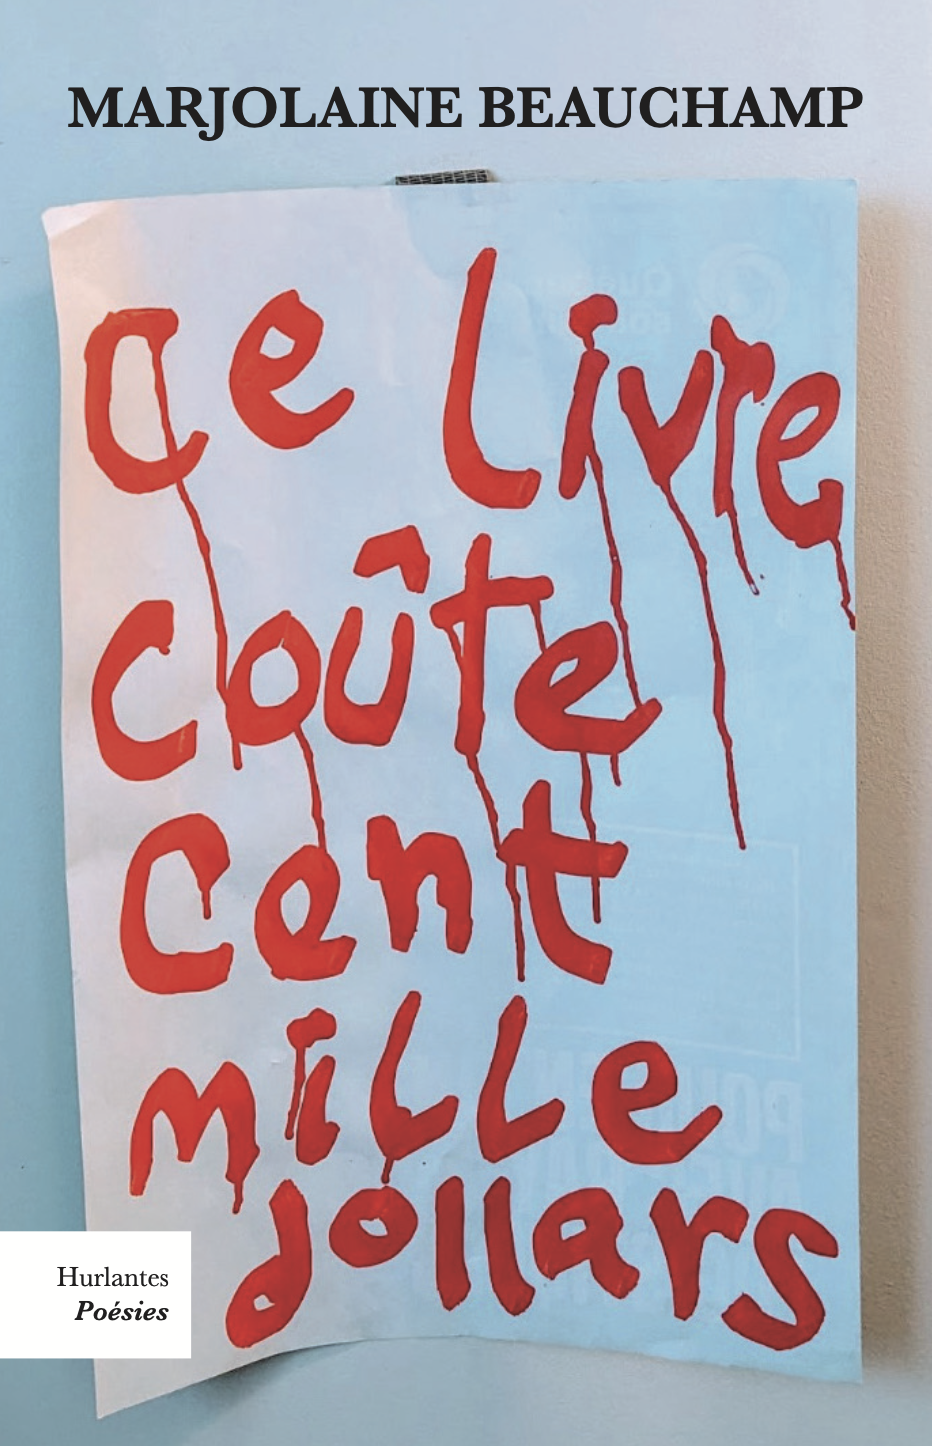 MARJOLAINE BEAUCHAMP
Ce livre
coûte
cent
mille
dollars
Hurlantes
Poésies